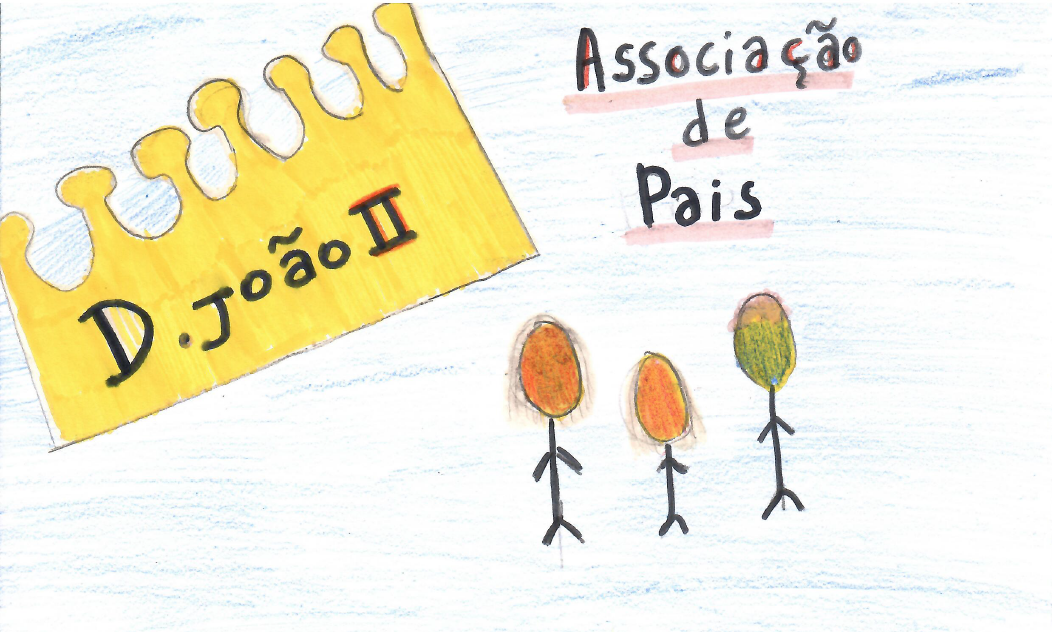 D. João II
Associação
de
Pais